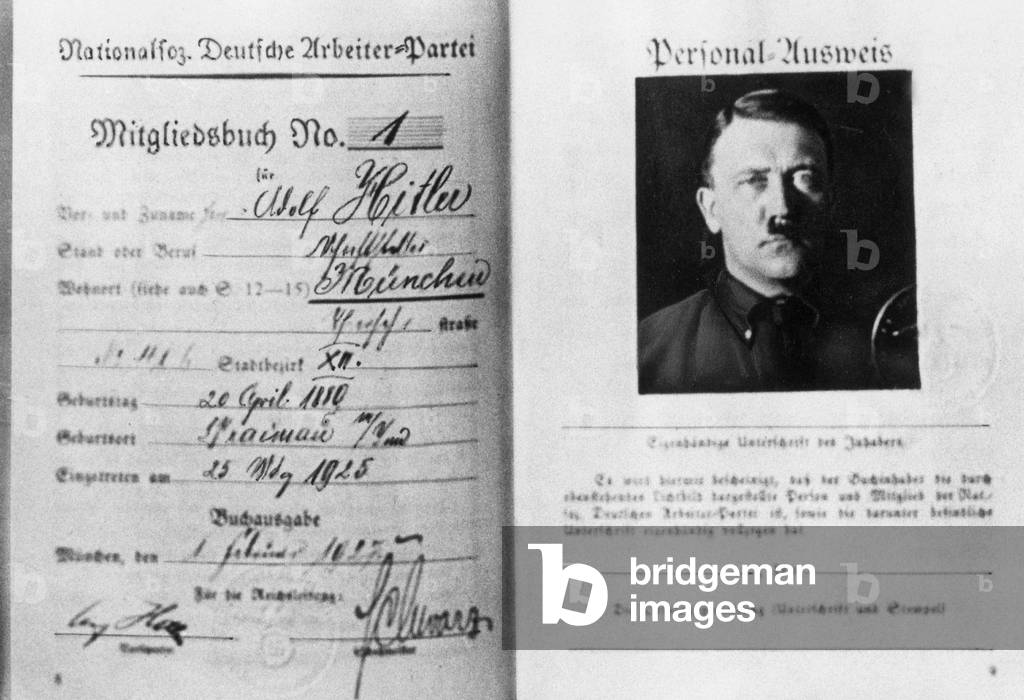 Nationalsoz. Deutsche Arbeiter-Partei
Mitgliedsbuch No. 1
für
Vor- und Zuname Adolf Hitler
Stand oder Beruf Schriftsteller
Wohnort (siehe auch S. 12—15) München
straße
Stadtbezirk XII.
Geburtstag 20 April 1889
Geburtsort Braunau a/Inn
Eingetreten am 25 1925
Buchausgabe
München, den 1 Februar 1927
Für die Reichsleitung:
Schwarz
8
Personal-Ausweis
Eigenhändige Unterschrift des Inhabers
Es wird hiermit bescheinigt, daß der Buchinhaber die durch
obenstehendes Lichtbild dargestellte Person und Mitglied der Nat.-
soz. Deutschen Arbeiter-Partei ist, sowie die darunter befindliche
Unterschrift eigenhändig vollzogen hat.
(Unterschrift und Stempel)
9
bridgeman
images
b